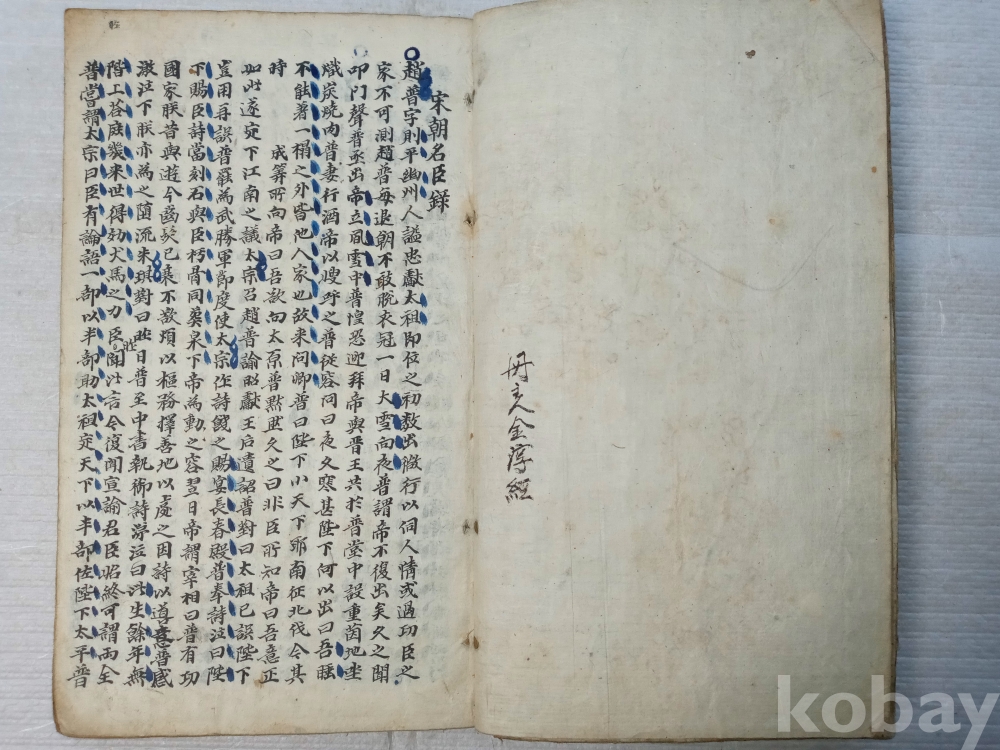 册主人金淳經
宋朝名臣錄
趙普字則平幽州人謚忠獻太祖即位之初數出微行以伺人情或過功臣之
家不可測趙普每退朝不敢脫衣冠一日大雪向夜普謂帝不復出矣久之聞
叩門聲普亟出帝立風雪中普惶恐迎拜帝與晉王共於普堂中設重茵地坐
熾炭燒肉普妻行酒帝以嫂呼之普從容問曰夜久寒甚陛下何以出曰吾睡
不能著一榻之外皆他人家也故来問卿普曰陛下小天下耶南征北伐今其
時 成筭所向帝曰吾欲向太原普默然久之曰非臣所知帝曰吾意正
如此遂定下江南之議太宗召趙普諭以獻王后遺詔普對曰太祖已誤陛下
豈用再誤普罷為武勝軍節度使太宗作詩餞之賜宴長春殿普奉詩泣曰陛
下賜臣詩當刻石與臣朽骨同葬泉下帝為動之容翌日帝謂宰相曰普有功
國家朕昔與遊今齒髮已衰不欲煩以樞務擇善地以處之因詩以導意普感
激泣下朕亦為之墮流朱琪對曰昨日普至中書執御詩涕泣曰此生餘年無
階上答庶幾来世得効犬馬之力臣昨聞此言今復聞宣諭君臣始終可謂兩全
普嘗謂太宗曰臣有論語一部以半部助太祖定天下以半部佐陛下太平普
kobay